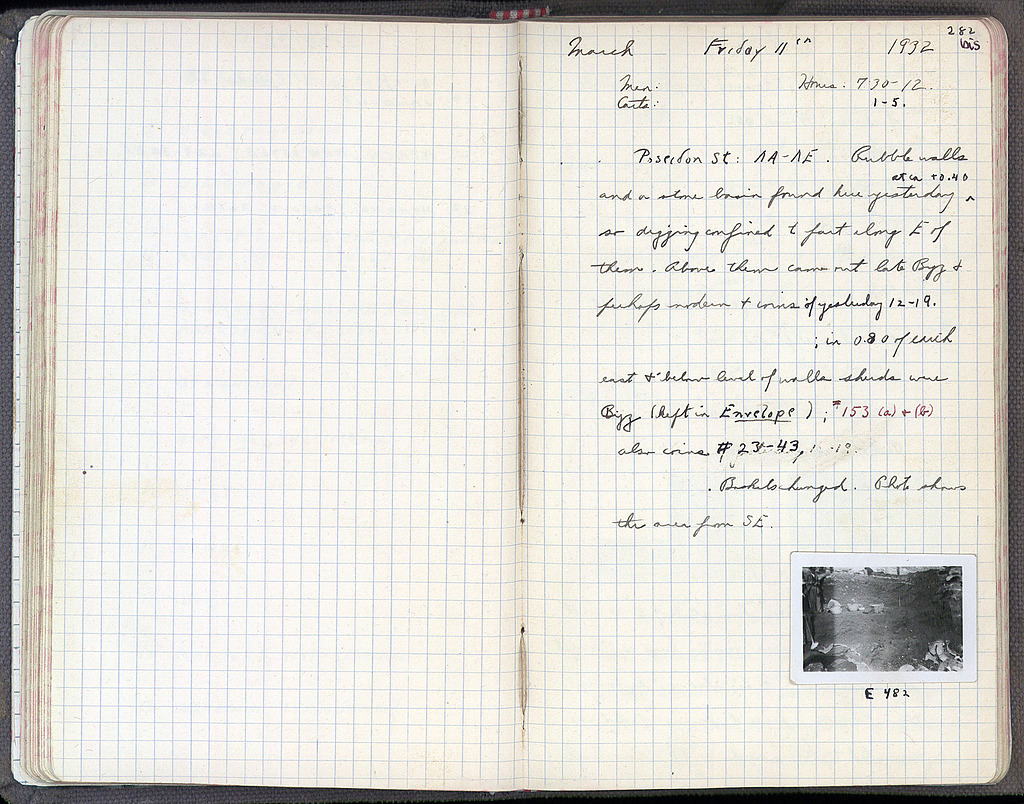 282
bis
March Friday 11th 1932
Men: Hours: 7:30-12.
Carts: 1-5.
Poseidon St: ΛΑ-ΛΕ. Rubble walls
at ca +0.40
and a stone basin found here yesterday ^
so digging confined to part along E of
them. Above them came out late Byz &
perhaps modern + coins of yesterday 12-19.
; in 0.80 of earth
east & below level of walls sherds were
Byz (kept in Envelope) ; #153 (a) + (b)
also coins # 23-43,
Baskets changed. Photo shows
the area from SE.
E 482